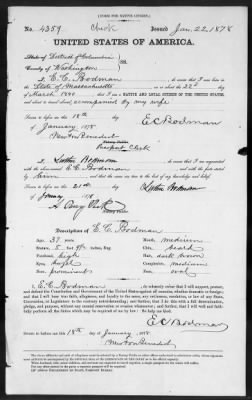 [FORM FOR NATIVE CITIZEN.]
No. 4359 Issued Jan. 22, 1878
UNITED STATES OF AMERICA.
State of District of Columbia
County of Washington } ss:
I, E. C. Bodman, do swear that I was born in the
State of Massachusetts, on or about the 22d day
of March 1840; that I am a NATIVE AND LOYAL CITIZEN OF THE UNITED STATES,
and about to travel abroad, accompanied by my wife
Sworn to before me this 18th day
of January 1878 E C Bodman
Newton Benedict
Passport Clerk
I, Luther Bodman, do swear that I am acquainted
with the above-named E. C. Bodman, and with the facts above stated
by him, and that the same are true to the best of my knowledge and belief.
Sworn to before me this 21st day
of January 1878 Luther Bodman
Description of E. C. Bodman
Age, 37 years. Mouth, medium
Stature, 5 feet inches, Eng. Chin, beard
Forehead, high Hair, dark brown
Eyes, hazel Complexion, medium
Nose, prominent Face, oval
I, E. C. Bodman, do solemnly swear that I will support, protect, and
defend the Constitution and Government of the United States against all enemies, whether domestic or foreign;
and that I will bear true faith, allegiance, and loyalty to the same, any ordinance, resolution, or law of any State,
Convention, or Legislature to the contrary notwithstanding; and further, that I do this with a full determination,
pledge, and purpose, without any mental reservation or evasion whatsoever; and further, that I will well and
faithfully perform all the duties which may be required of me by law: So help me God.
E C Bodman
Sworn to before me this 18th day of January 1878
Newton Benedict